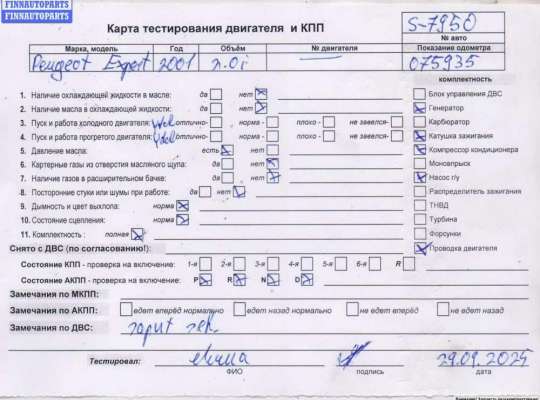 FINNAUTOPARTS
FINNAUTOPARTS
Карта тестирования двигателя и КПП
S-7950
№ авто
Марка, модель Год Объём № двигателя Показание одометра
Peugeot Expert 2001 2.0i 075935
комплектность
1. Наличие охлаждающей жидкости в масле: да нет
Блок управления ДВС
2. Наличие масла в охлаждающей жидкости: да нет
Генератор
3. Пуск и работа холодного двигателя: отлично- норма - плохо - не завелся-
Карбюратор
4. Пуск и работа прогретого двигателя: отлично- норма - плохо - не завелся-
Катушка зажигания
5. Давление масла: есть нет
Компрессор кондиционера
6. Картерные газы из отверстия масляного щупа: да нет
Моновпрыск
7. Наличие газов в расширительном бачке: да нет
Насос г/у
8. Посторонние стуки или шумы при работе: да нет
Распределитель зажигания
9. Дымность и цвет выхлопа: норма
ТНВД
10. Состояние сцепления: норма
Турбина
11. Комплектность : полная
Форсунки
Снято с ДВС (по согласованию!):
Проводка двигателя
Состояние КПП - проверка на включение: 1-я 2-я 3-я 4-я 5-я 6-я R
Состояние АКПП - проверка на включение: P R N D
Замечания по МКПП:
Замечания по АКПП: едет вперёд нормально едет назад нормально не едет вперёд не едет назад
Замечания по ДВС:
Тестировал:
29.09.2025
ФИО подпись дата